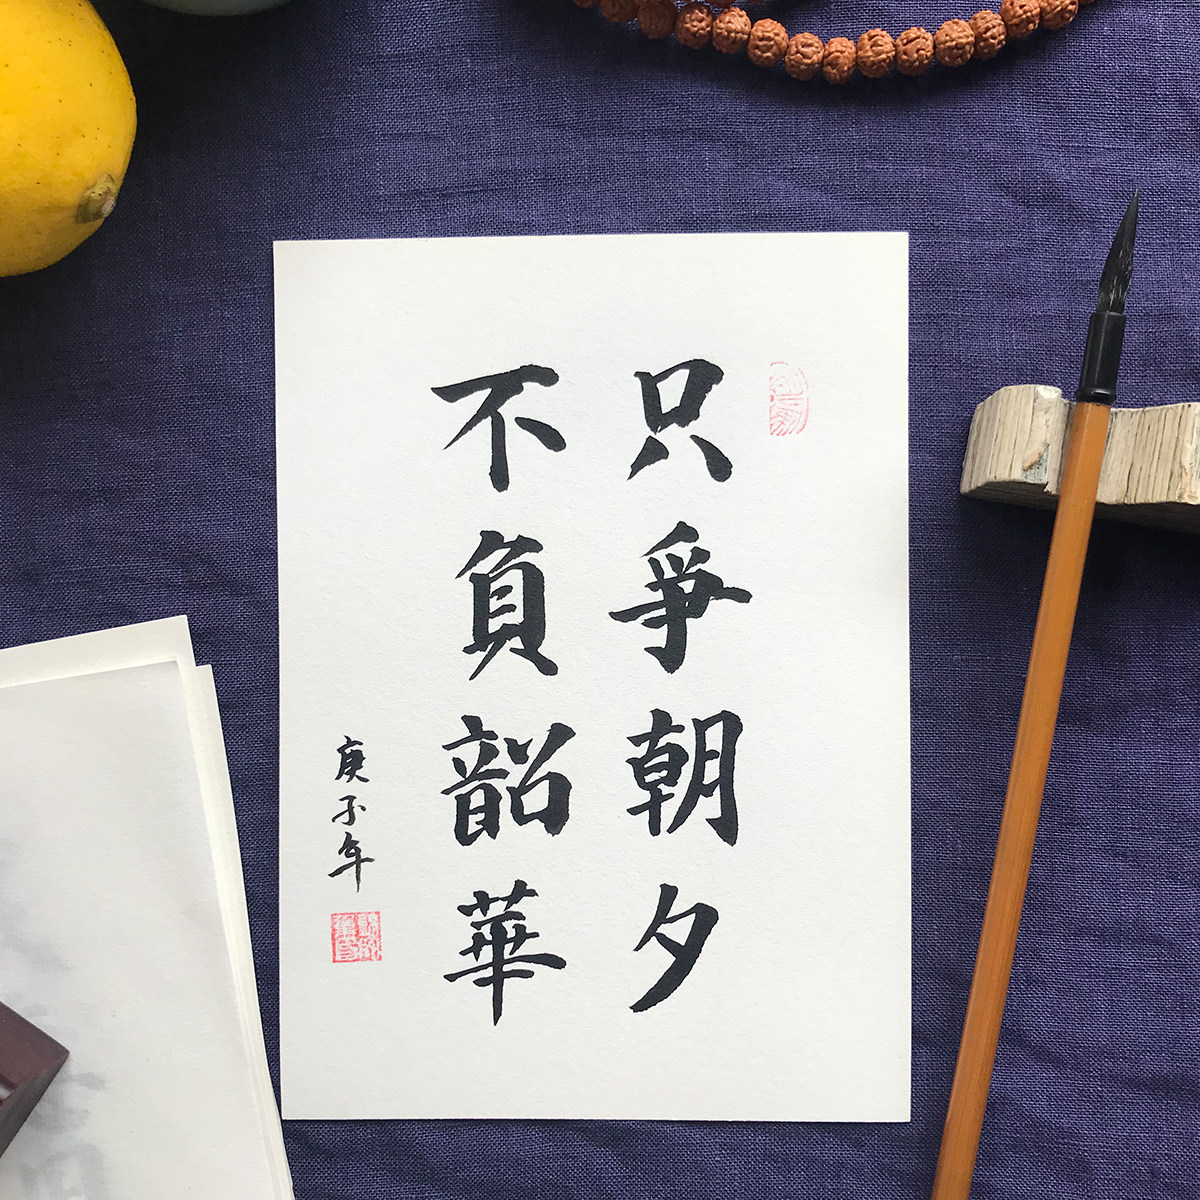 只爭朝夕
不負韶華
庚子年